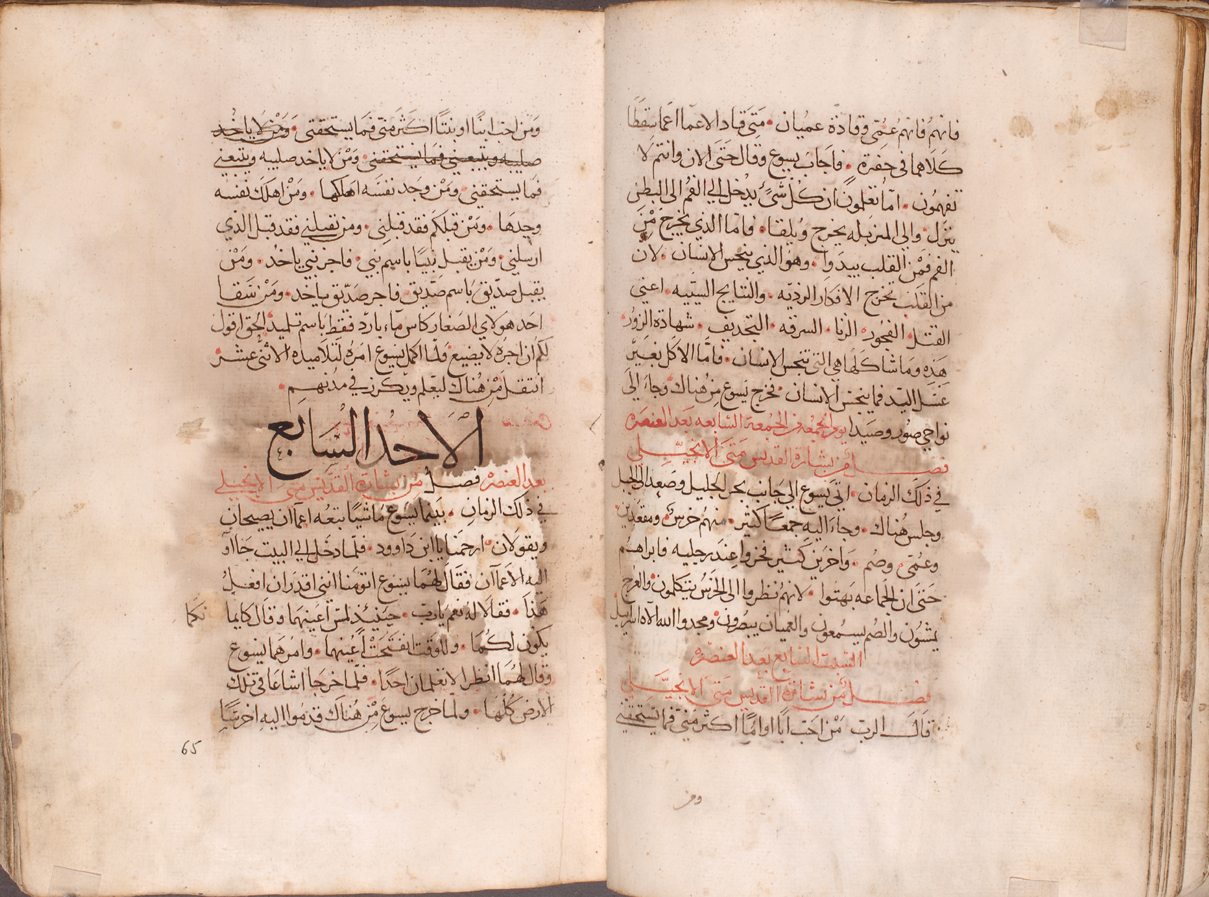 فانهم فانهم عمي وقادة عميان • متى قاد الاعما اعما سقطا
كلاهما في حفره • فاجاب يسوع وقال حتى الان وانتم لا
تفهمون • اما تعلمون ان كل شي يدخل الي الفم الى البطن
ينزل • والي المزبله يخرج ويلقا • فاما الذي يخرج من
الفم فمن القلب يبدوا • وهو الذي ينجس الانسان • لان
من القلب تخرج الافكار الرديه • والنتايج السييه • اعني
القتل • الفجور • الزنا • السرقه • التجديف • شهادة الزور •
هذه وما شاكلها هي التي تنجس الانسان • فاما الاكل بغير
غسل اليد فما ينجس الانسان • فخرج يسوع من هناك وجا الى
نواحي صور وصيدا يوم الجمعه من الجمعة السابعه بعد العنصره
فصل من بشارة القديس متى الانجيلي
في ذلك الزمان • اتى يسوع الي جانب بحر الجليل وصعد الى الجبل
وجلس هناك • وجاء اليه جمعا كثير • منهم خرس ومقعدين
وعمي وصم • واخرين كثير نحزوا عند رجليه فابراهم
حتى ان الجماعه بهتوا • لانهم نظروا الى الخرس يتكلمون والعرج
يمشون والصم يسمعون والعميان يبصرون • ومجدوا الله الاه اسراييل
السبت السابع بعد العنصره
فصل من بشارة القديس متى الانجيلي
قال الرب من احب ابا او اما اكثر مني فما يستحقني
ومن
ومن احب ابنا او بنتا اكثر مني فما يستحقني • ومن لا ياخد
صليبه ويتبعني فما يستحقني • ومن لا ياخد صليبه ويتبعني
فما يستحقني • ومن وجد نفسه اهلكها • ومن اهلك نفسه
وجدها • ومن قبلكم فقد قبلني • ومن تقبلني فقد قبل الذي
ارسلني • ومن يقبل نبيا باسم نبي • فاجر نبي ياخد • ومن
يقبل صديق باسم صديق • فاجر صديق ياخد • ومن سقا
احد هولاي الصغار كاس ماء بارد فقط باسم تلميد الحق اقول
لكم ان اجره لا يضيع • فلما اكمل يسوع امره لتلاميده الاثني عشر
انتقل من هناك ليعلم ويكرز في مدنهم •
الاحد السابع
بعد العنصره فصل من بشارة القديس متى الانجيلي
في ذلك الزمان • بينما يسوع ماشيا تبعه اعماان يصيحان
ويقولان • ارحمنا يا ابن داوود • فلما دخل الي البيت جااو
اليه الاعماان فقال لهما يسوع اتومنا انني اقدر ان افعل
هذا • فقالا له نعم يارب • حينيد لمس اعينهما وقال كايما نكما
يكون لكما • وللوقت انفتحت اعينهما • وامرهما يسوع
وقال لهما انظرا لا تعلمان احدا • فلما خرجا اشاعا في تلك
الارض كلها • ولما خرج يسوع من هناك قدموا اليه اخرسا
65